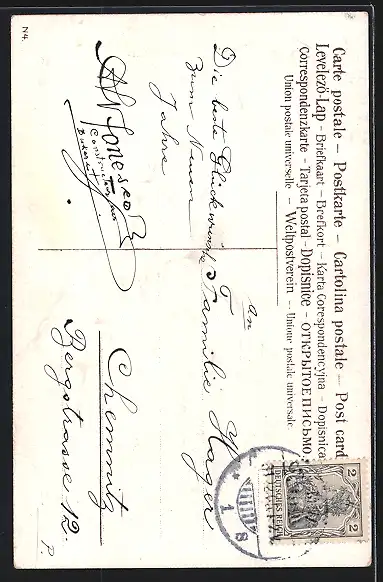 Carte postale – Postkarte – Cartolina postale – Post card
Levelező-Lap – Briefkaart – Brefkort – Karta Corespondencyjna – Dopisnica
Correspondenzkarte – Tarjeta postal – Dopisnice – ОТКРЫТОЕ ПИСЬМО.
Union postale universelle – Weltpostverein – Unione postale universale
Die beste Glückwünsche
Zum Neuen
Jahre
Bukarest
An
Familie Hager
Chemnitz
Bergstrasse 12.
P.
N4.
2 2
DEUTSCHES REICH
1 8